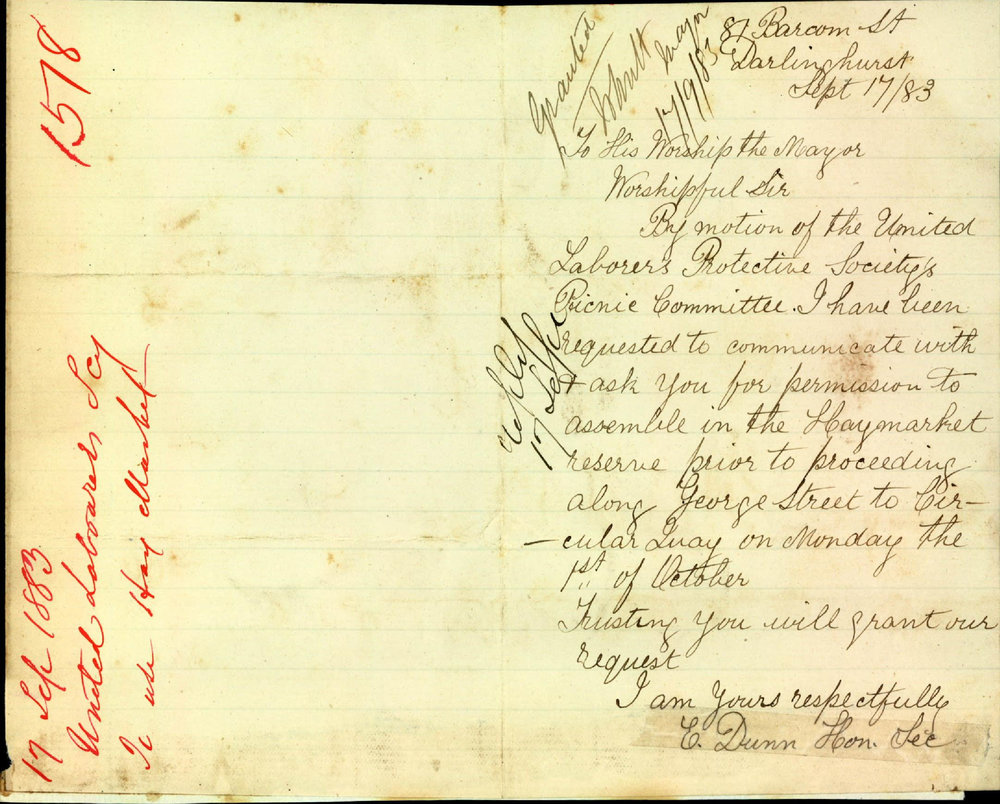 1578
17 Sep 1883
United Labourers Scy
To use Hay Market
Granted
Mayor
17/9/83
81 Barcom St
Darlinghurst
Sept 17/83
To His Worship the Mayor
Worshipful Sir
By motion of the United
Laborers Protective Society's
Picnic Committee. I have been
requested to communicate with
& ask you for permission to
assemble in the Haymarket
reserve prior to proceeding
along George Street to Cir-
-cular Quay on Monday the
1st of October
Trusting you will grant our
request
I am yours respectfully
E. Dunn Hon. Sec
Reply
17 Sep